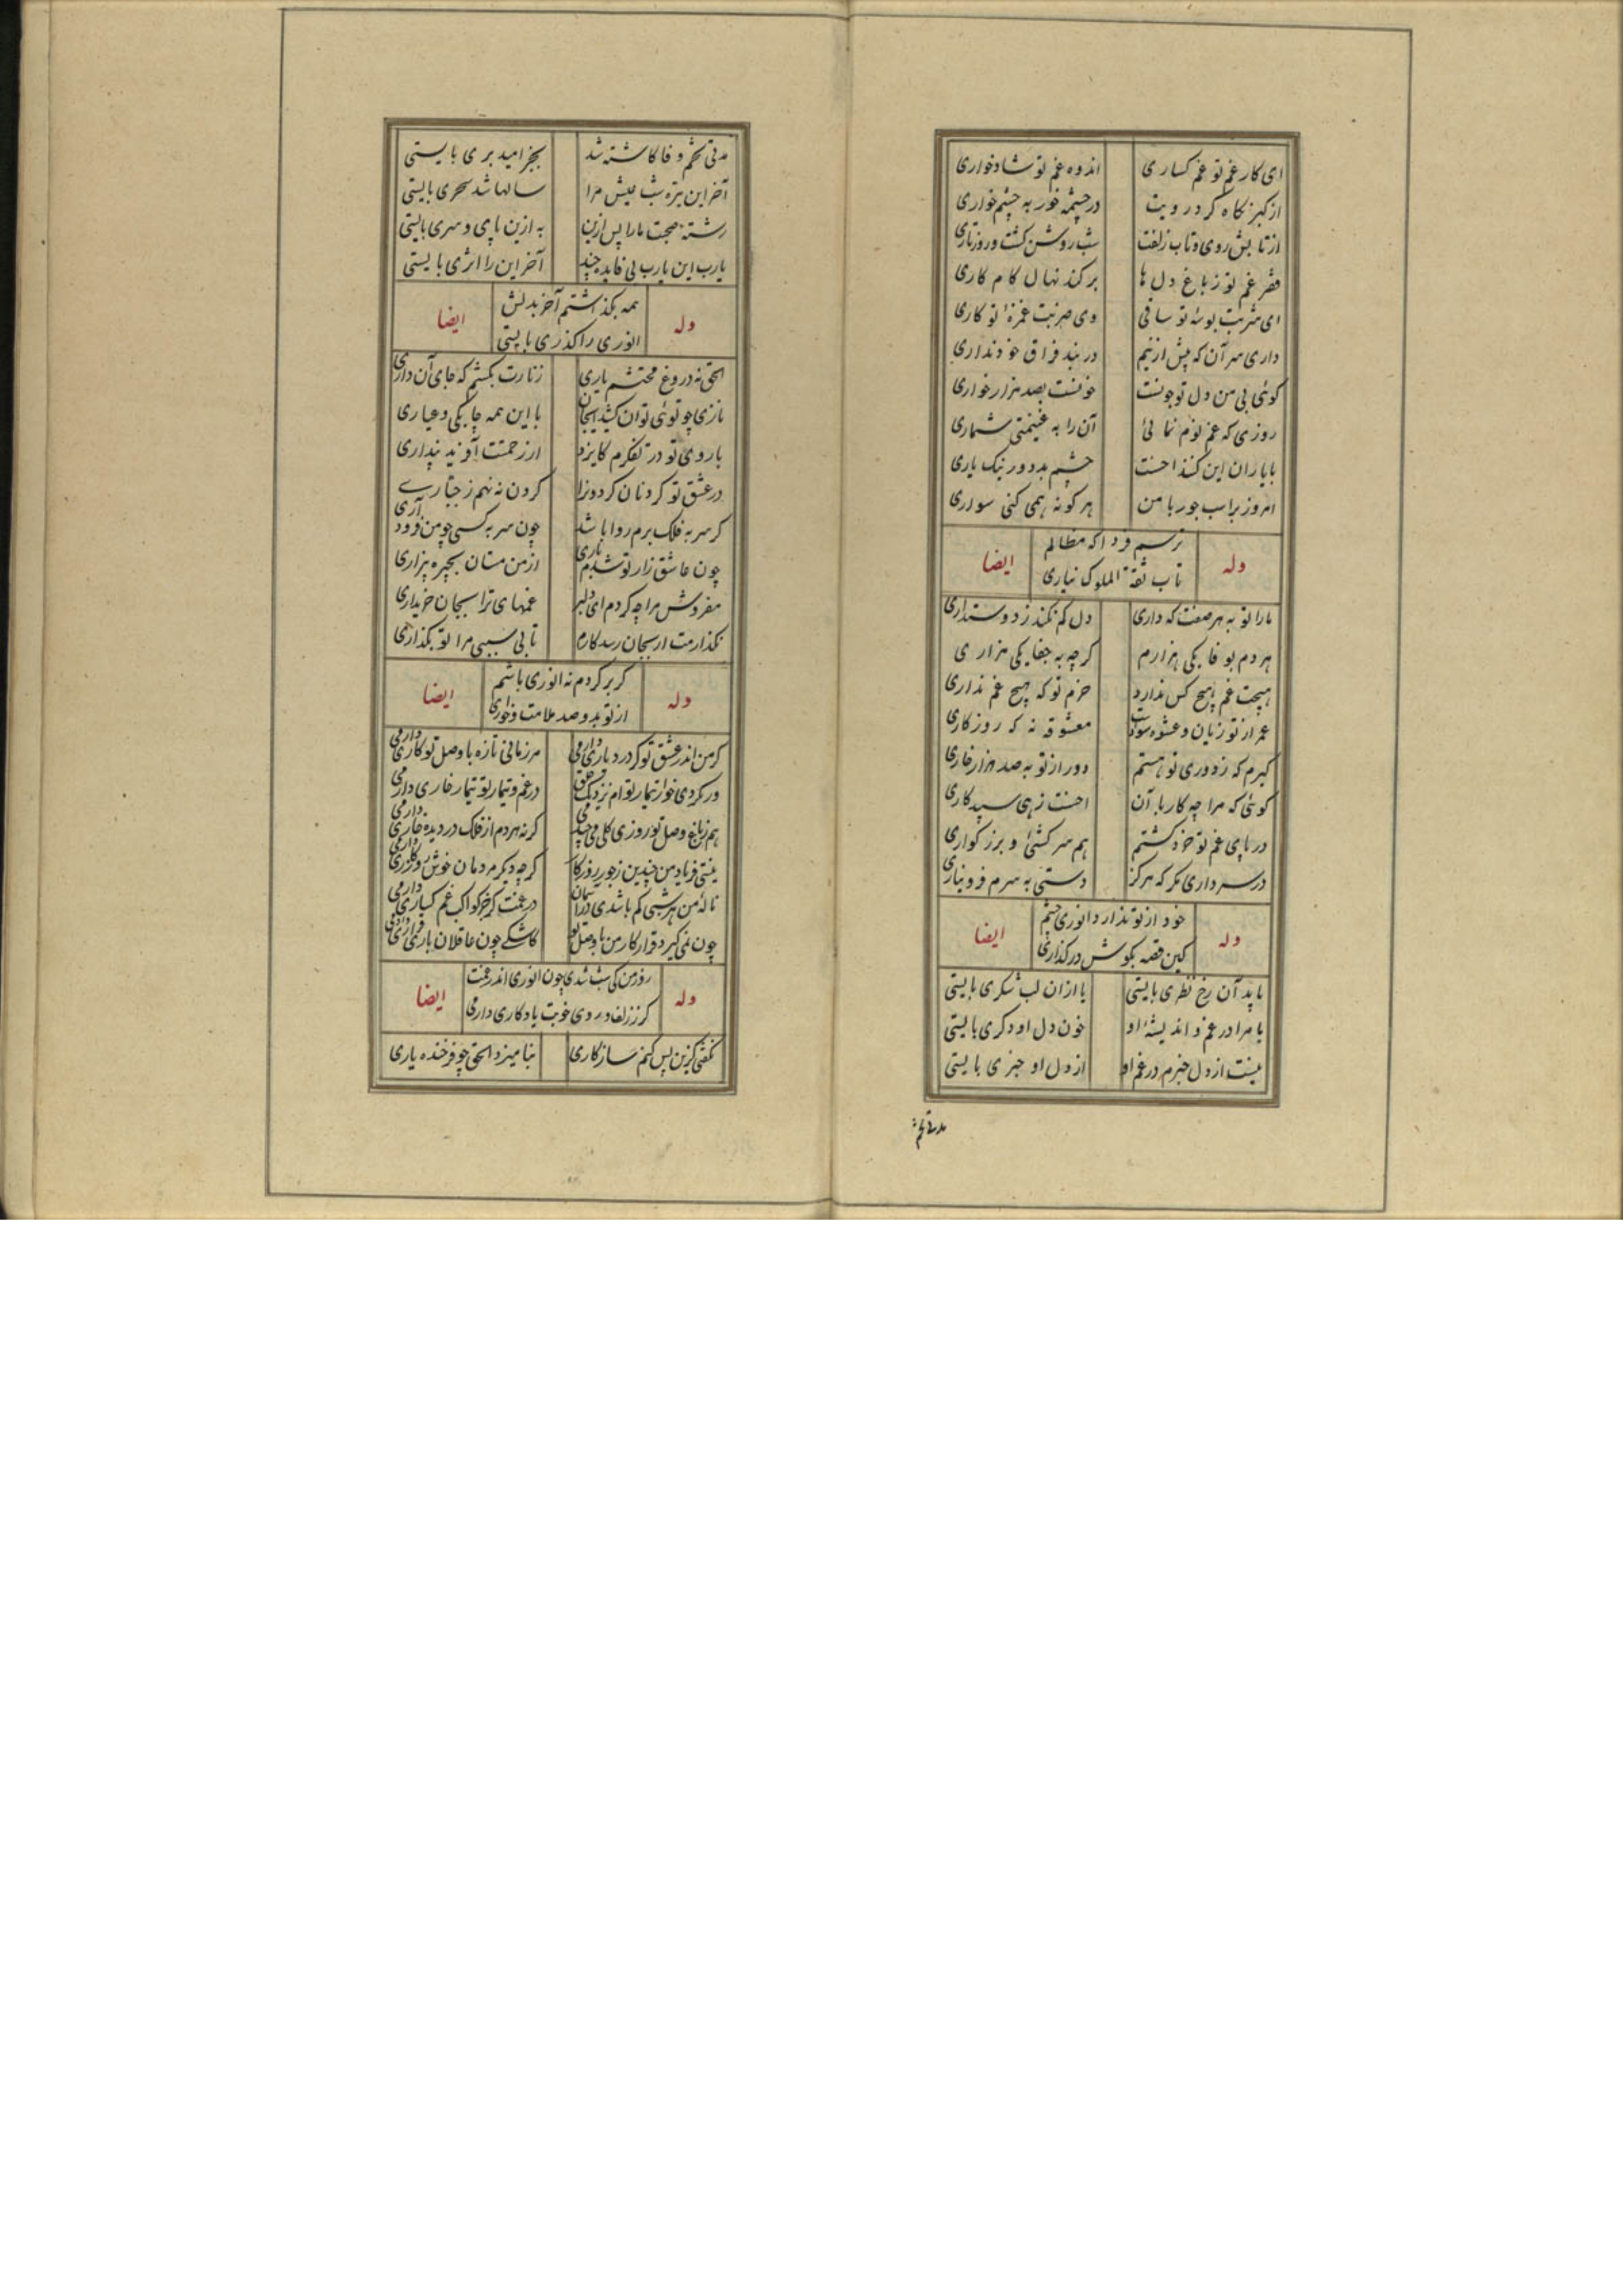 ای کار غم تو غم کساری اندوه غم تو شادخواری
از کبر نکاه کرد رویت در چشمه خور به چشم خواری
از تابش روی و تاب زلفت شب روشن کشت و روز تاری
قهر غم تو ز باغ دل ها برکند نهال کام کاری
ای شربت بوسهٔ تو ساقی وی ضربت غمزهٔ تو کاری
داری سر آن که پیش ازینم در بند فراق خود نداری
کوئی بی من دل تو چونست خونست بصد هزار خواری
روزی که غم نوم نمائی آن را به غنیمتی شماری
با یاران این کنند احسنت چشم بد دور نیک یاری
امروز بر اسب جور با من هر کونه همی کنی سواری
وله
ترسیم فردا که مظالم
تاب ثقة الملوک نیاری
ایضا
ما را تو به هر صفت که داری دل کم نکند ز دوستداری
هر دم بوفا یکی هزارم کرچه به جفا یکی هزاری
هیچت غم هیچ کس ندارد خرم تو که هیچ غم نداری
عمر از تو زیان و عشوه سودست معشوقه نه که روزکاری
کیرم که ز دوری تو هستم دور از تو به صد هزار خاری
کوئی که مرا چه کار با آن احسنت زهی سپیدکاری
در پای غم تو خرد کشتم هم سرکشی و بزرکواری
در سر داری مکر که هرکز دستی به سرم فرو نیاری
وله
خود از تو ندارد انوری چشم
کین قصه بکوش در کذاری
ایضا
یا بد آن رخ نظری بایستی یا ازان لب شکری بایستی
یا مرا در غم و اندیشهٔ او خون دل او دکری بایستی
نیست از دل خبرم در غم او از دل او خبری بایستی
مدتی تخم
مدتی تخم وفا کاشته شد بجز امید بری بایستی
آخر این تیره شب عیش مرا سالها شد سحری بایستی
رشتهٔ صحبت ما را پس ازین به ازین پای و سری بایستی
یارب این یارب بی فایده چند آخر این را اثری بایستی
وله
همه بکذاشتم آخر بدلش
انوری را کذری بایستی
ایضا
الحق نه دروغ محتشم یاری زنارت بکشم که جای آن داری
نازی چو توئی توان کشید ایجان با این همه چابکی و عیاری
با روی تو در تفکرم کایزد از رحمتت آفرید پنداری
در عشق تو کردنان کردون را کردن نه نهم ز جباری
کر سر به فلک برم روا باشد چون سر به کسی چو من فرود آری
چون عاشق زار تو شدم باری از من مستان بخیره بیزاری
مفروش مرا چه کردم ای دلبر غمهای ترا بجان خریداری
نکذارمت ار بجان رسد کارم تا بی سببی مرا تو بکذاری
وله
کر برکردم نه انوری باشم
از تو بدو صد ملامت و خواری
ایضا
کر من اندر عشق تو کر درد یاری دارمی هر زمانی تازه با وصل تو کاری دارمی
ور نکردی خوار تیمار توام نزدیک خلق در غم و تیمار تو تیمار خاری دارمی
هم ز باغ وصل تو روزی کلی می چیدمی کر نه هر دم از فلک در دیده خاری دارمی
نیستی فریاد من چندین ز جور روزکار کرچه دیکر مردمان خوش روزکاری دارمی
نالهٔ من هر شبی کم باشدی در آسمان در غمت کر جز کواکب غم کساری دارمی
چون نمی کیرد قرار کار من با وصل تو کاشکی چون عاقلان باری قراری دارمی
وله
روز من کی شب شدی چون انوری اندر غمت
کر ز زلف و روی خوبت یادکاری دارمی
ایضا
نکفتی کزین پس کنم سازکاری بنامیزد الحق چو فرخنده یاری